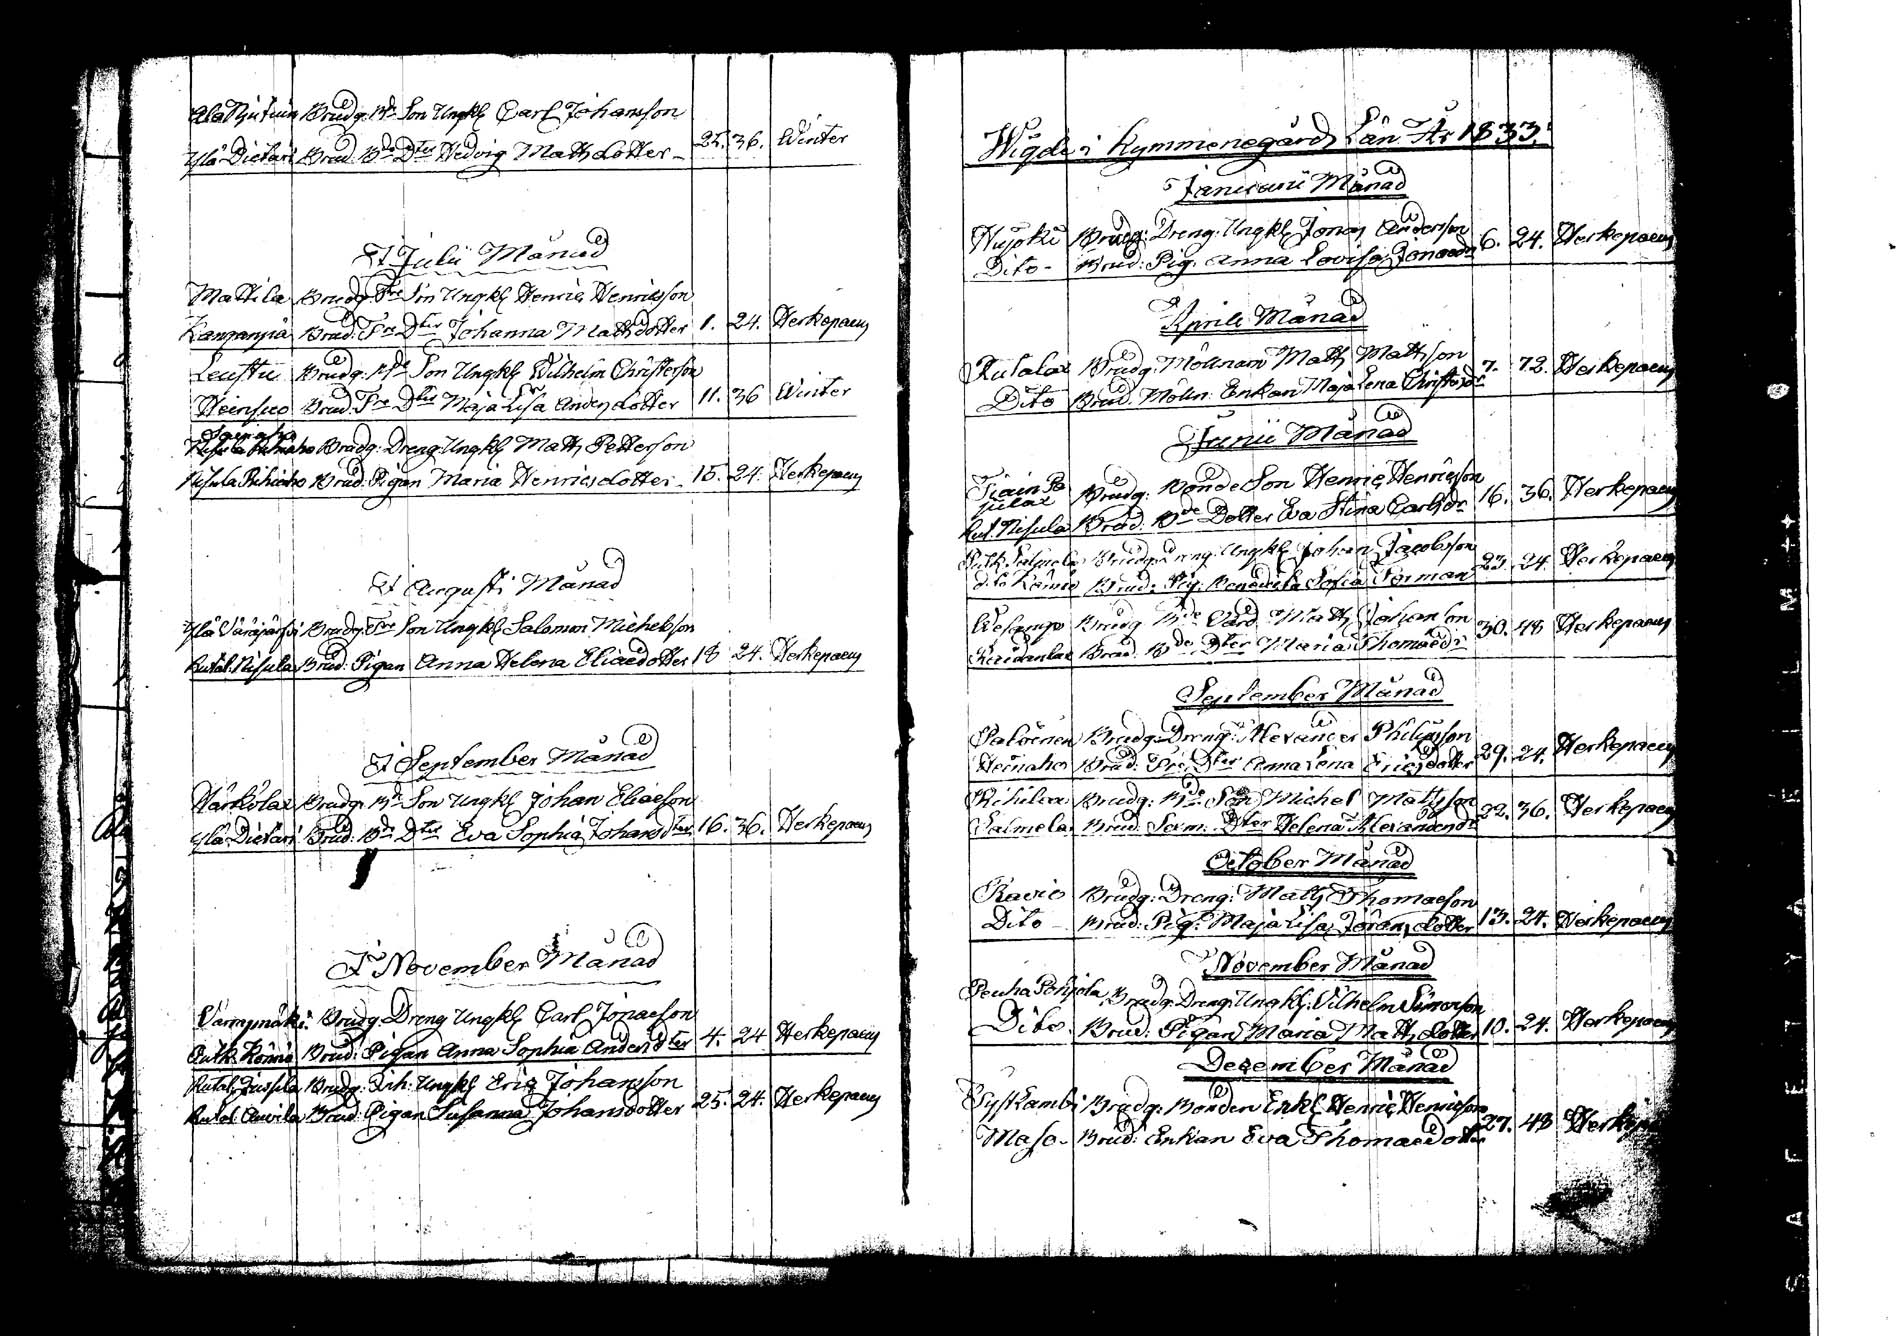 Brudg: Bde Son Ungkl Carl Johansson
Ylä Dietari Brud: Bde Dter Hedvig Mattsdotter 25. 36. Winter
I Julii Månad
Mattila Brudg: Tre Son Ungkl Henric Henricsson
Brud: Tre Dter Johanna Mattsdotter 1. 24. Herkepaeus
Leustu Brudg: Bde Son Ungkl Wilhelm Christerson
Heinsuo Brud: Tre Dter Maja Lisa Andersdotter 11. 36 Winter
Brudg: Dreng Ungkl Matts Petterson
Brud: Pigan Maria Henricsdotter 15. 24. Herkepaeus
I Augusti Månad
Brudg: Tre Son Ungkl Salomon Michelsson
Rutal. Nisula Brud: Pigan Anna Helena Eliaedotter 18 24. Herkepaeus
I September Månad
Härkölax Brudg: Bde Son Ungkl Johan Eliaeson
Ylä Dietari Brud: Bde Dter Eva Sophia Johansdter 16. 36. Herkepaeus
I November Månad
Brudg: Dreng Ungkl Carl Jonaeson
Brud: Pigan Anna Sophia Andersdter 4. 24 Herkepaeus
Rutal. Jussila Brudg: Inh: Ungkl Eric Johansson
Rutal. Brud: Pigan Susanna Johansdotter 25. 24. Herkepaeus
Wigde i Kymmenegårds Län År 1833.
Januarii Månad
Brudg: Dreng: Ungkl Jonas Anderson
Dito - Brud: Pig. Anna Lovisa Jonaedr 6. 24. Herkepaeus
Aprili Månad
Rutalax Brudg: Mölnarn Matts Mattsson
Dito Brud: Möln: Enkan Maja Lena Christersdr 7. 72. Herkepaeus
Junii Månad
Brudg: Bonde Son Henric Henricsson
Rut. Nisula Brud: Bde Dotter Eva Stina Carlsdr 16. 36. Herkepaeus
Brudg: Dreng: Ungkl Johan Jacobsson
Brud: Pig. Benedicta Sofia Forman 23. 24. Herkepaeus
Brudg Bde Matts Johanson
Brud: Bde Dter Maria Thomaedr 30. 48 Herkepaeus
September Månad
Brudg: Dreng: Alexander Philipsson
Heinaho Brud: Tre Dter Anna Lena Ericsdotter 29. 24. Herkepaeus
Brudg: Bde Son Michel Mattsson
Salmela Brud: Dter Helena Alexandersdr 22. 36. Herkepaeus
October Månad
Ravio Brudg: Dreng: Matts Thomaeson
Dito - Brud: Pig: Maja Lisa Göransdotter 13. 24. Herkepaeus
November Månad
Pohjola Brudg: Dreng: Ungkl: Vilhelm Simonson
Dito. Brud: Pigan Maria Mattsdotter 10. 24. Herkepaeus
December Månad
Syskambi Brudg: Bonden Enkl Henric Henricsson
Maso - Brud: Enkan Eva Thomaedotter 27. 48
SAFETY A FILM